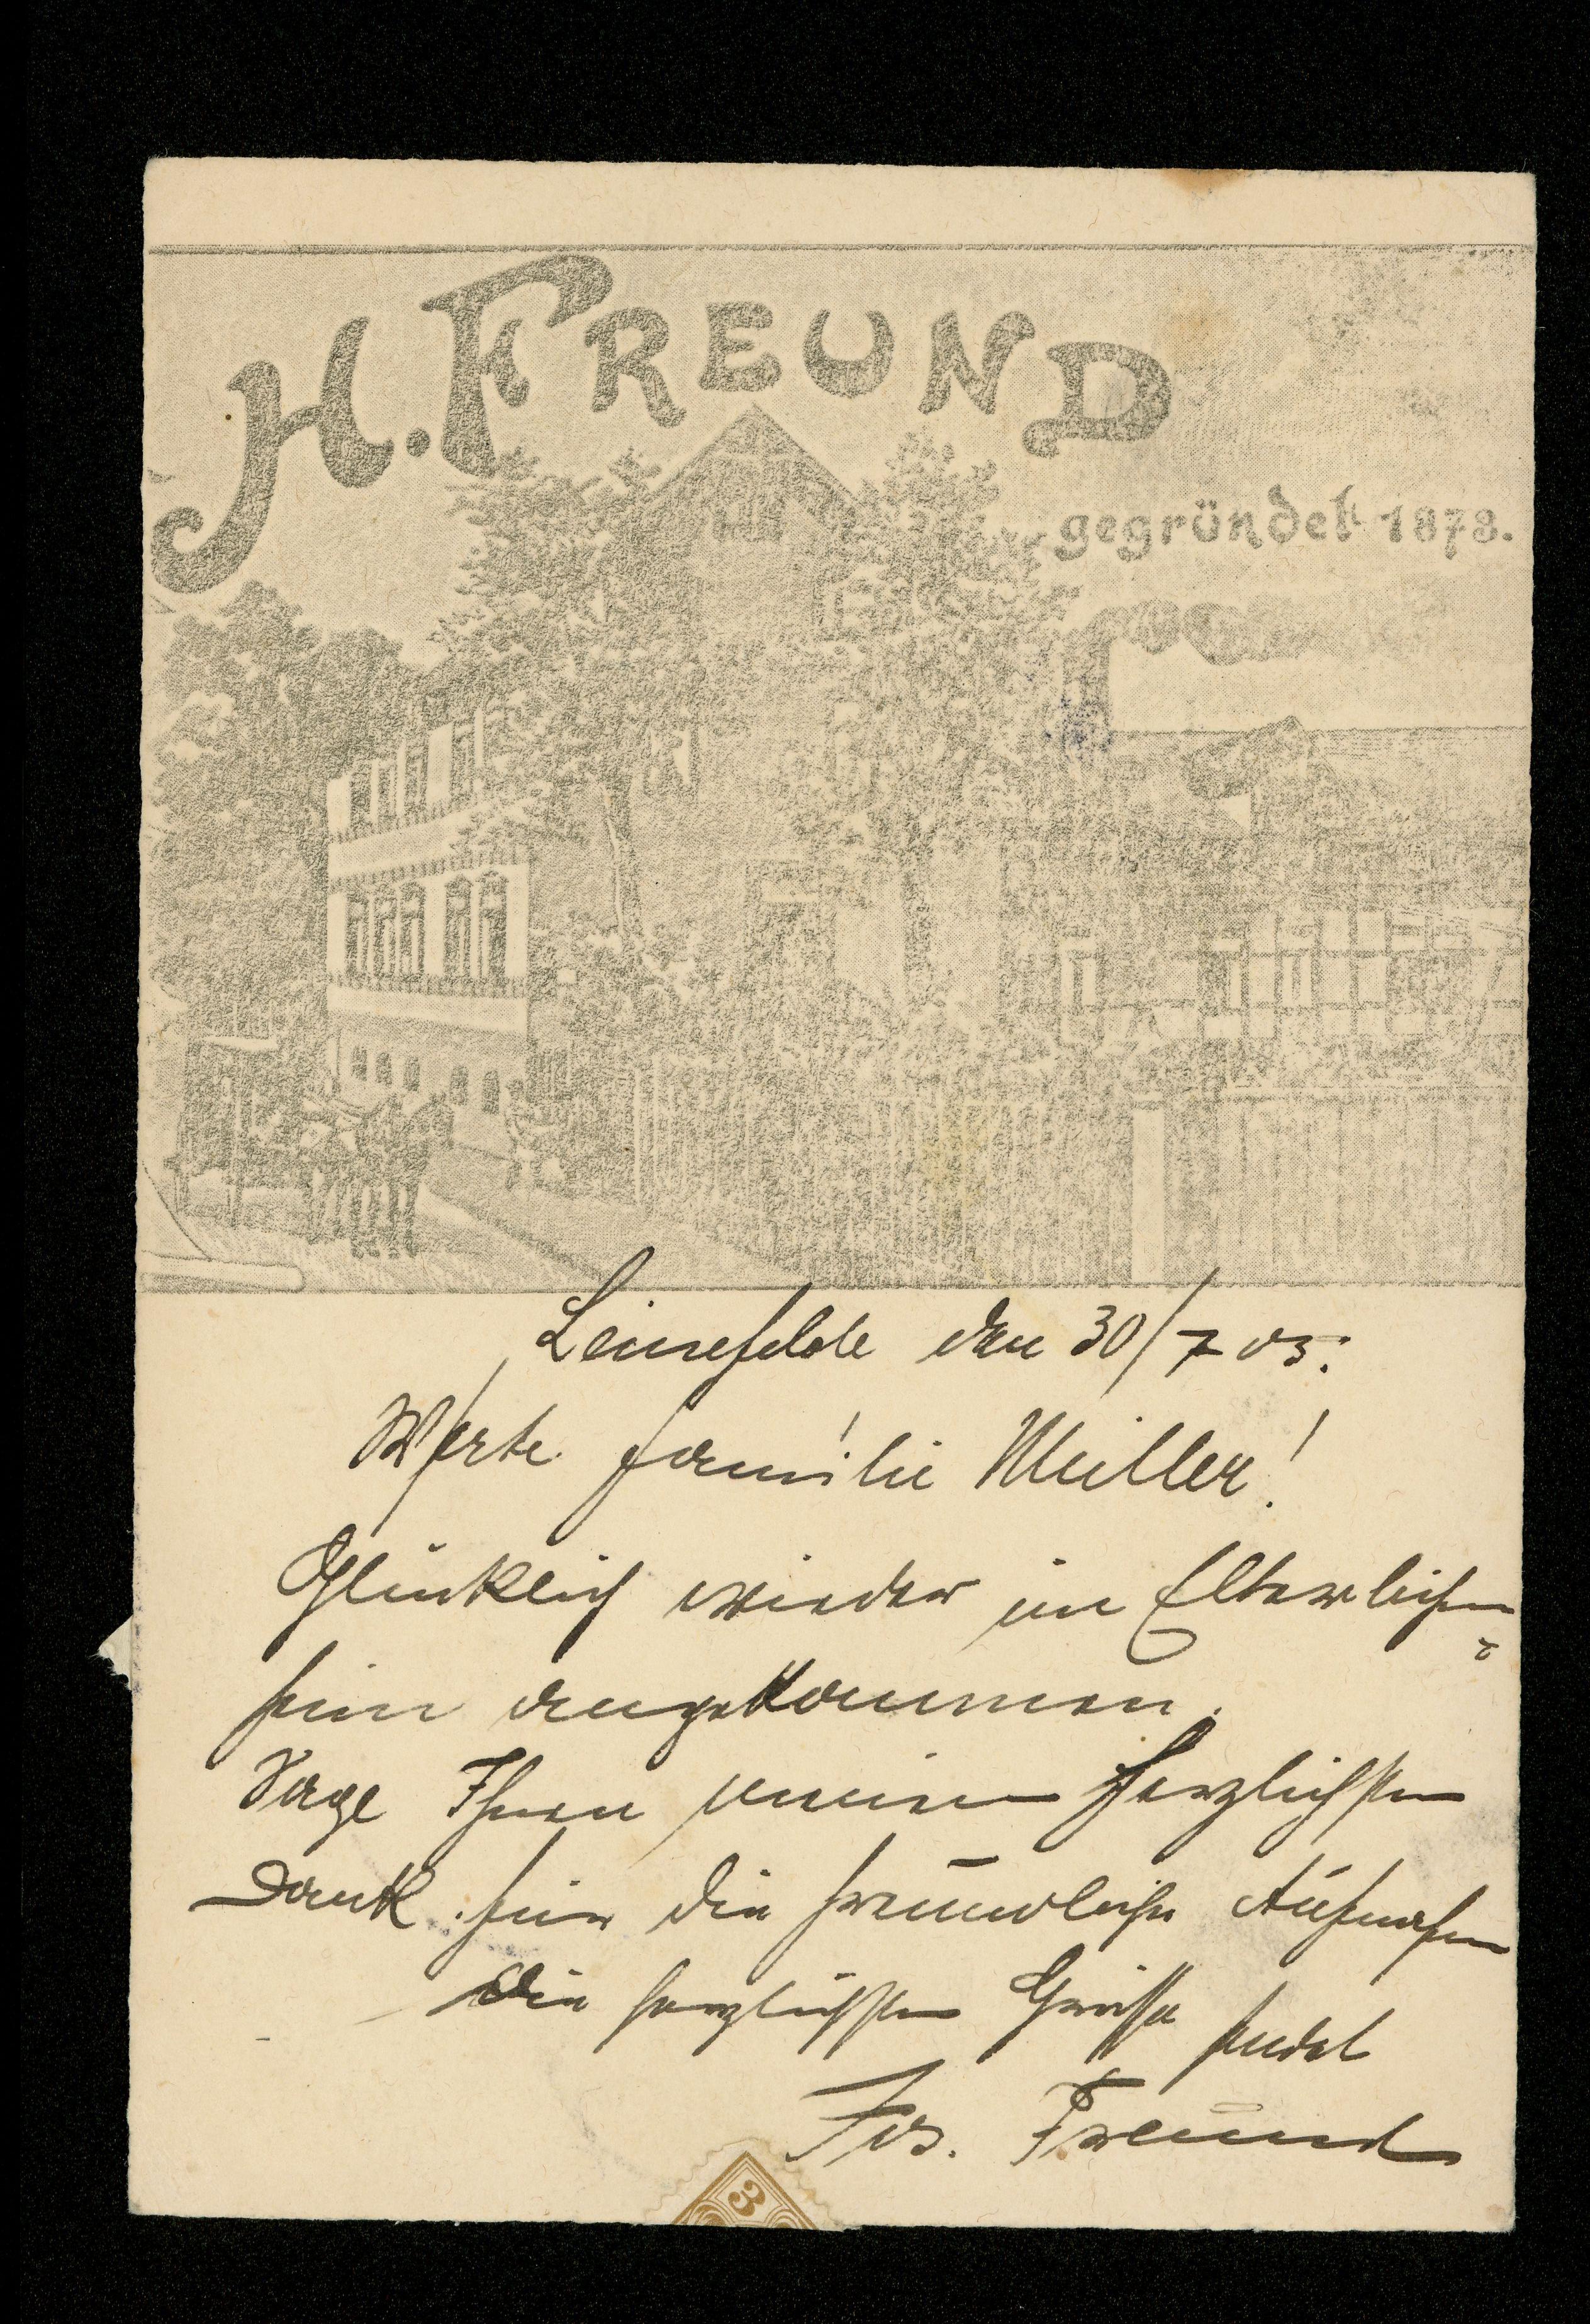 H. FREUND
gegründet 1878.
Leinefelde den 30/7 05.
Werte Familie Müller!
Glücklich wieder im Elterlichen
heim angekommen.
Sage Ihnen meinen herzlichsten
Dank für die freundliche Aufnahme
Die herzlichsten Grüsse sendet
Jos. Freund
3